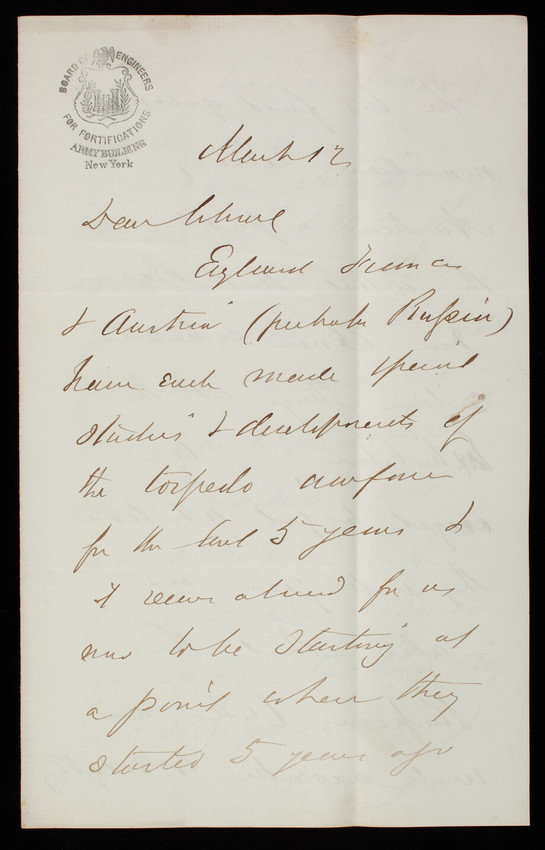 BOARD OF ENGINEERS
FOR FORTIFICATIONS
ARMY BUILDING
New York
March 12
Dear
England France
& Austria (probably Russia)
have each made special
studies & developments of
the torpedo warfare
for the last 5 years &
it seems absurd for us
now to be starting at
a point where they
started 5 years ago